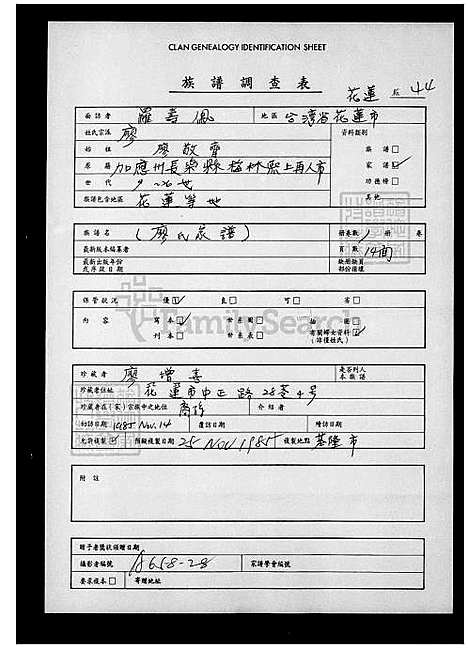 CLAN GENEALOGY IDENTIFICATION SHEET
族譜調查表
花蓮 44
面訪者 羅壽鳳 地區 台灣省花蓮市
姓氏宗派 廖 資料類別
始祖 廖敬 族譜□
原籍 加應州長樂縣 上再人市 家譜☑
世代 ~26世 功德榜□
族譜包含地區 花蓮等地 其他
族譜名 (廖氏族譜) 冊卷數 1 冊 卷
最新版本編纂者 頁數 14面
最新出版年份或序跋日期 缺冊缺頁部份備填
保管狀況 優☑ 良□ 可□ 劣□
內容 寫本☑ 世系圖□ 插圖□
刊本□ 世系表□ 有關婦女資料☑(非僅姓氏)
FamilySearch
珍藏者 廖增 是否列入本族譜
珍藏者住址 花蓮市中正路28巷4號
珍藏者在(家)宗族中之地位 裔孫 介紹者
初訪日期 1985 Nov. 14 覆訪日期 增訪日期
允許複製☑ 預擬複製日期 25 NOV 1985 複製地點 基隆市
附註
贈予者獎狀頒贈日期
攝影者編號 18658-28 家譜學會編號
要求複本□ 寄贈地址